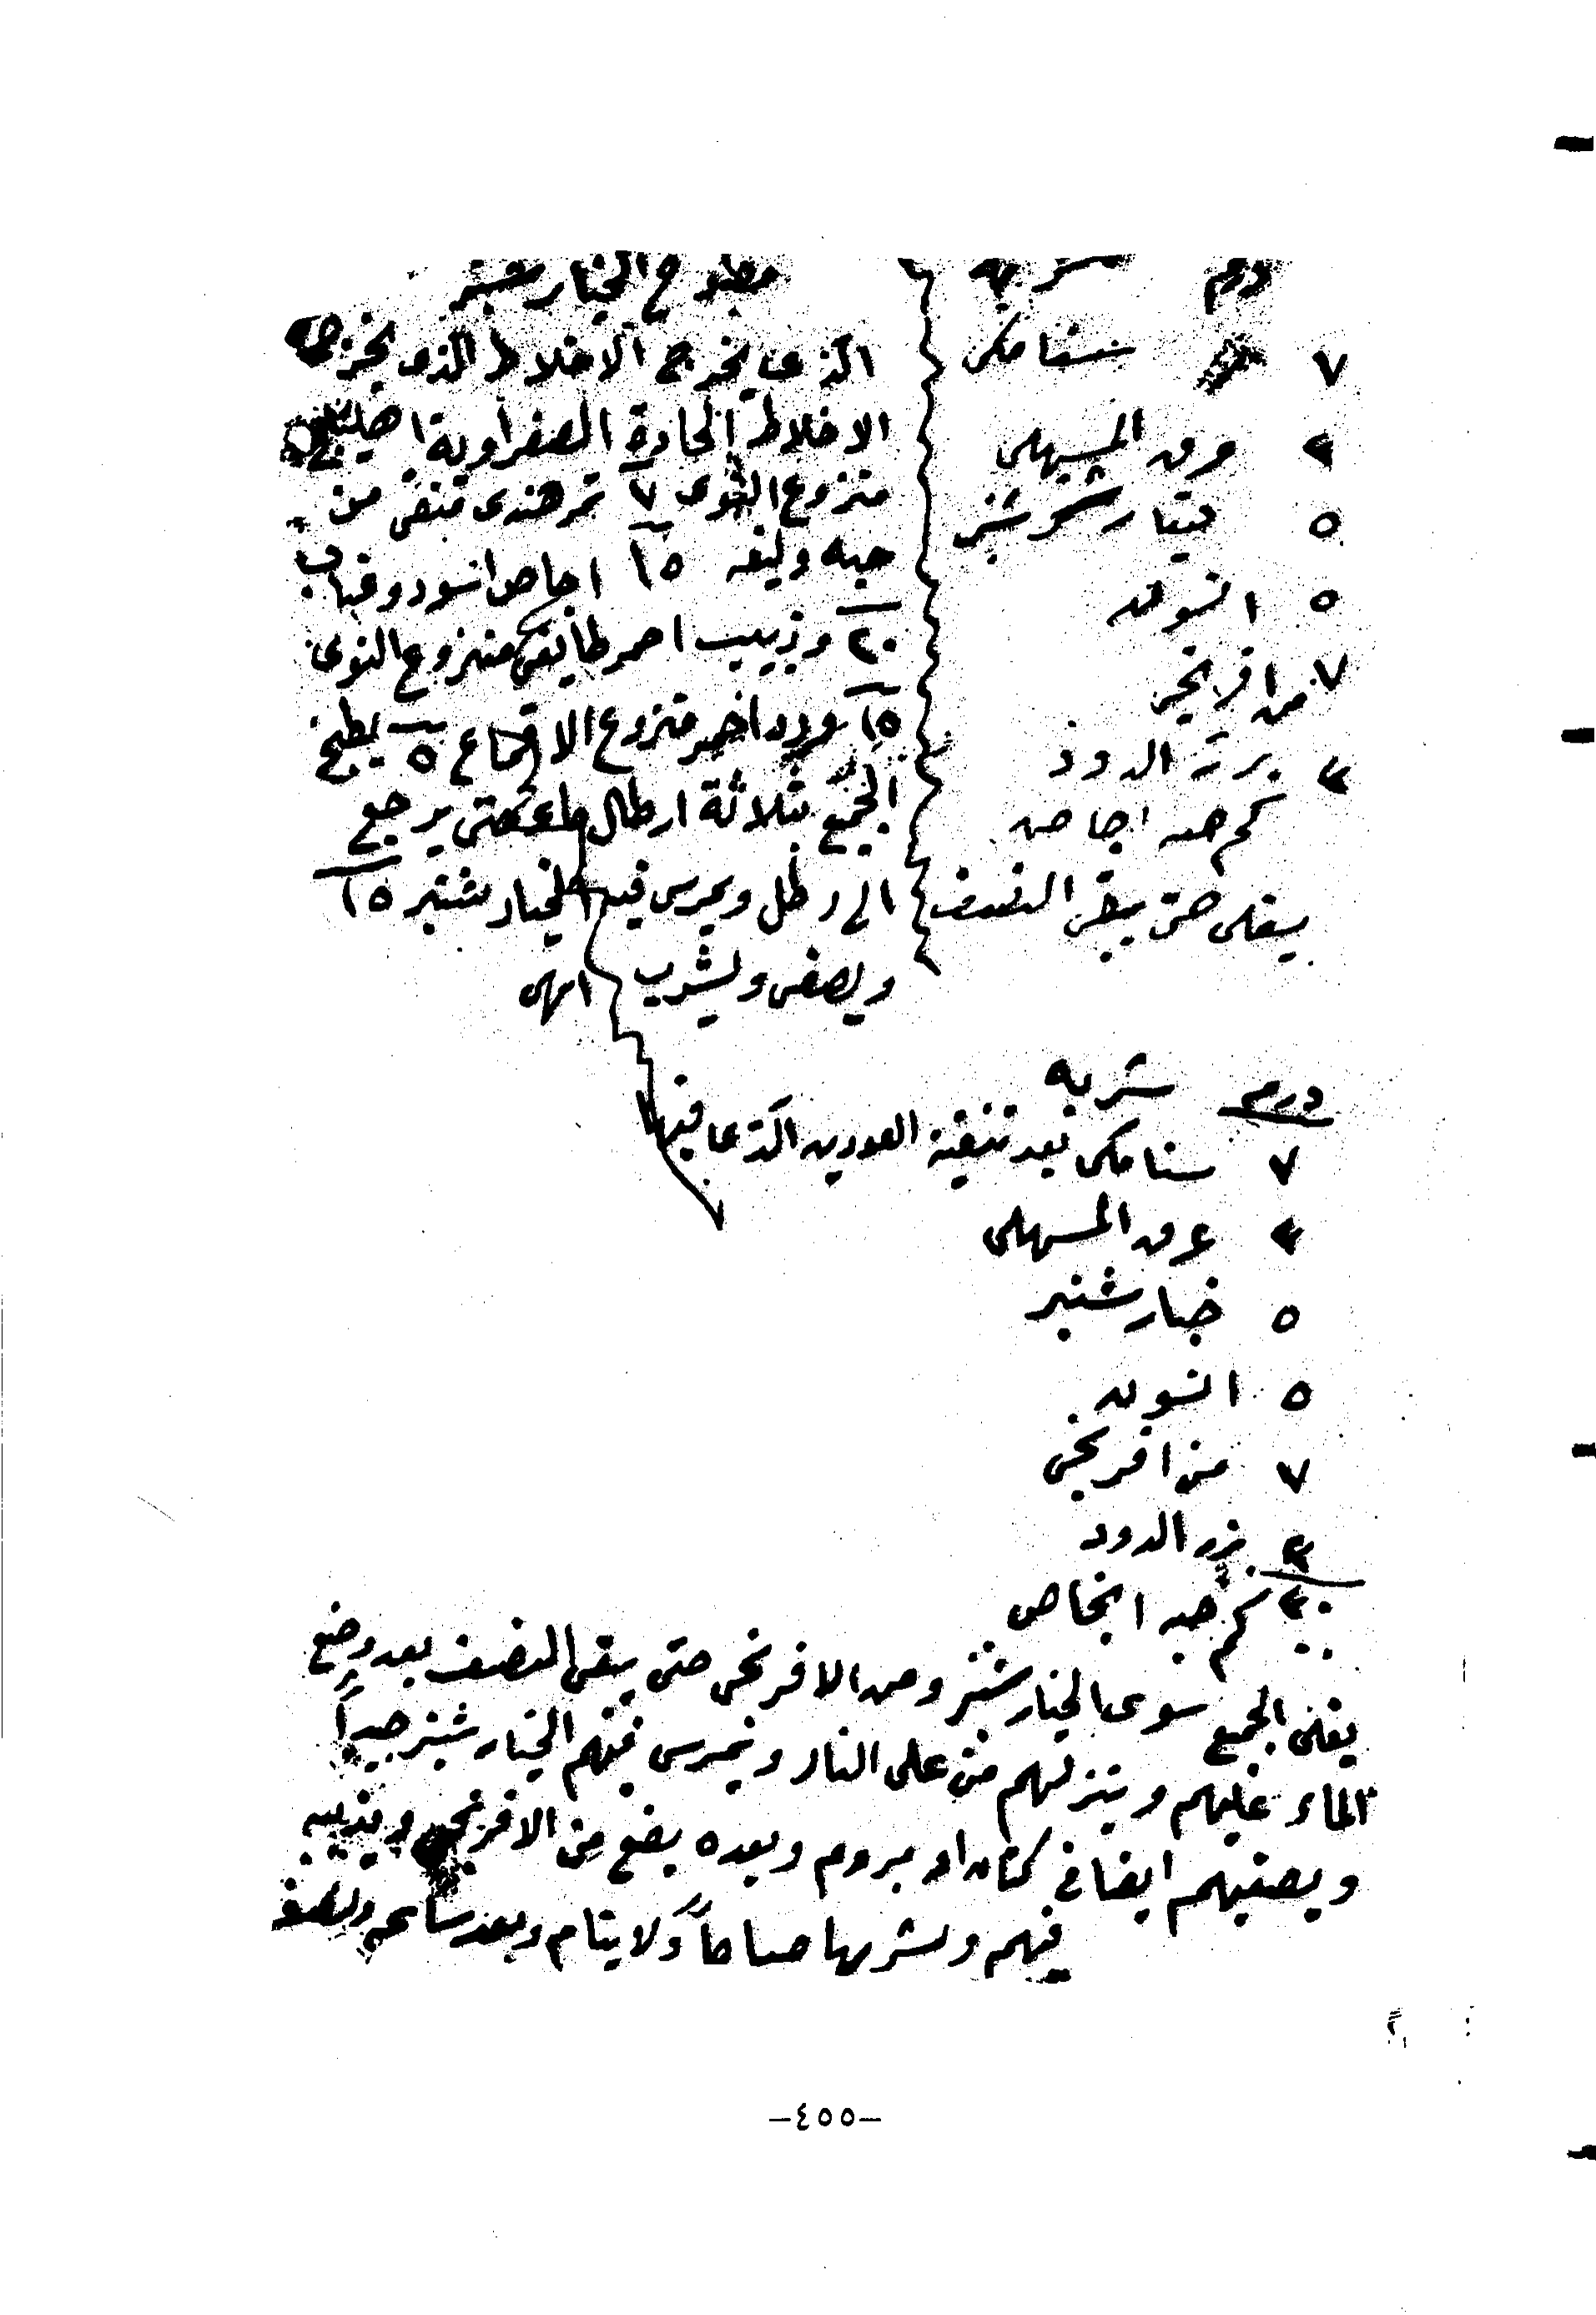 درم شربه
٧ سنامكى
٢ عرق المسهل
٥ خيار شنبر
٥ انسون
٧ من افرنجى
٢ بزر الدود
كم حبه اجاص
يغلى حتى يبقى النصف
مطبوخ الخيار شنبر
الذى يخرج الاخلاط الذى يخرج
الاخلاط الحادة الصفراوية اهليلج
منزوع النوى ٧ تمر هندى منقى من
حبه وليفه ١٥ اجاص اسود وعناب
٢٠ وزبيب احمر طايفى منزوع النوى
١٥ ورد احمر منزوع الاقماع ٥ يطبخ
الجميع بثلاثة ارطال ماء حتى يرجع
الى رطل ويمرس فيه الخيار شنبر ١٥
ويصفى ويشرب انتهى
درم شربه
٧ سنامكى بعد تنقية العودين الذى فيها
٢ عرق المسهل
٥ خيار شنبر
٥ انسون
٧ من افرنجى
٢ بزر الدود
٢٠ كم حبه انجاص
يغلى الجميع سوى الخيار شنبر ومن الافرنجى حتى يبقى النصف بعد وضع
الماء عليهم وينزلهم من على النار ويمرس فيهم الخيار شنبر جيداً
ويصفيهم ايضا فى كتان او مبروم وبعده يضع من الافرنجى ويذيبه
فيهم ويشربها صباحاً ولا ينام وبعد ساعه
-٤٥٥-